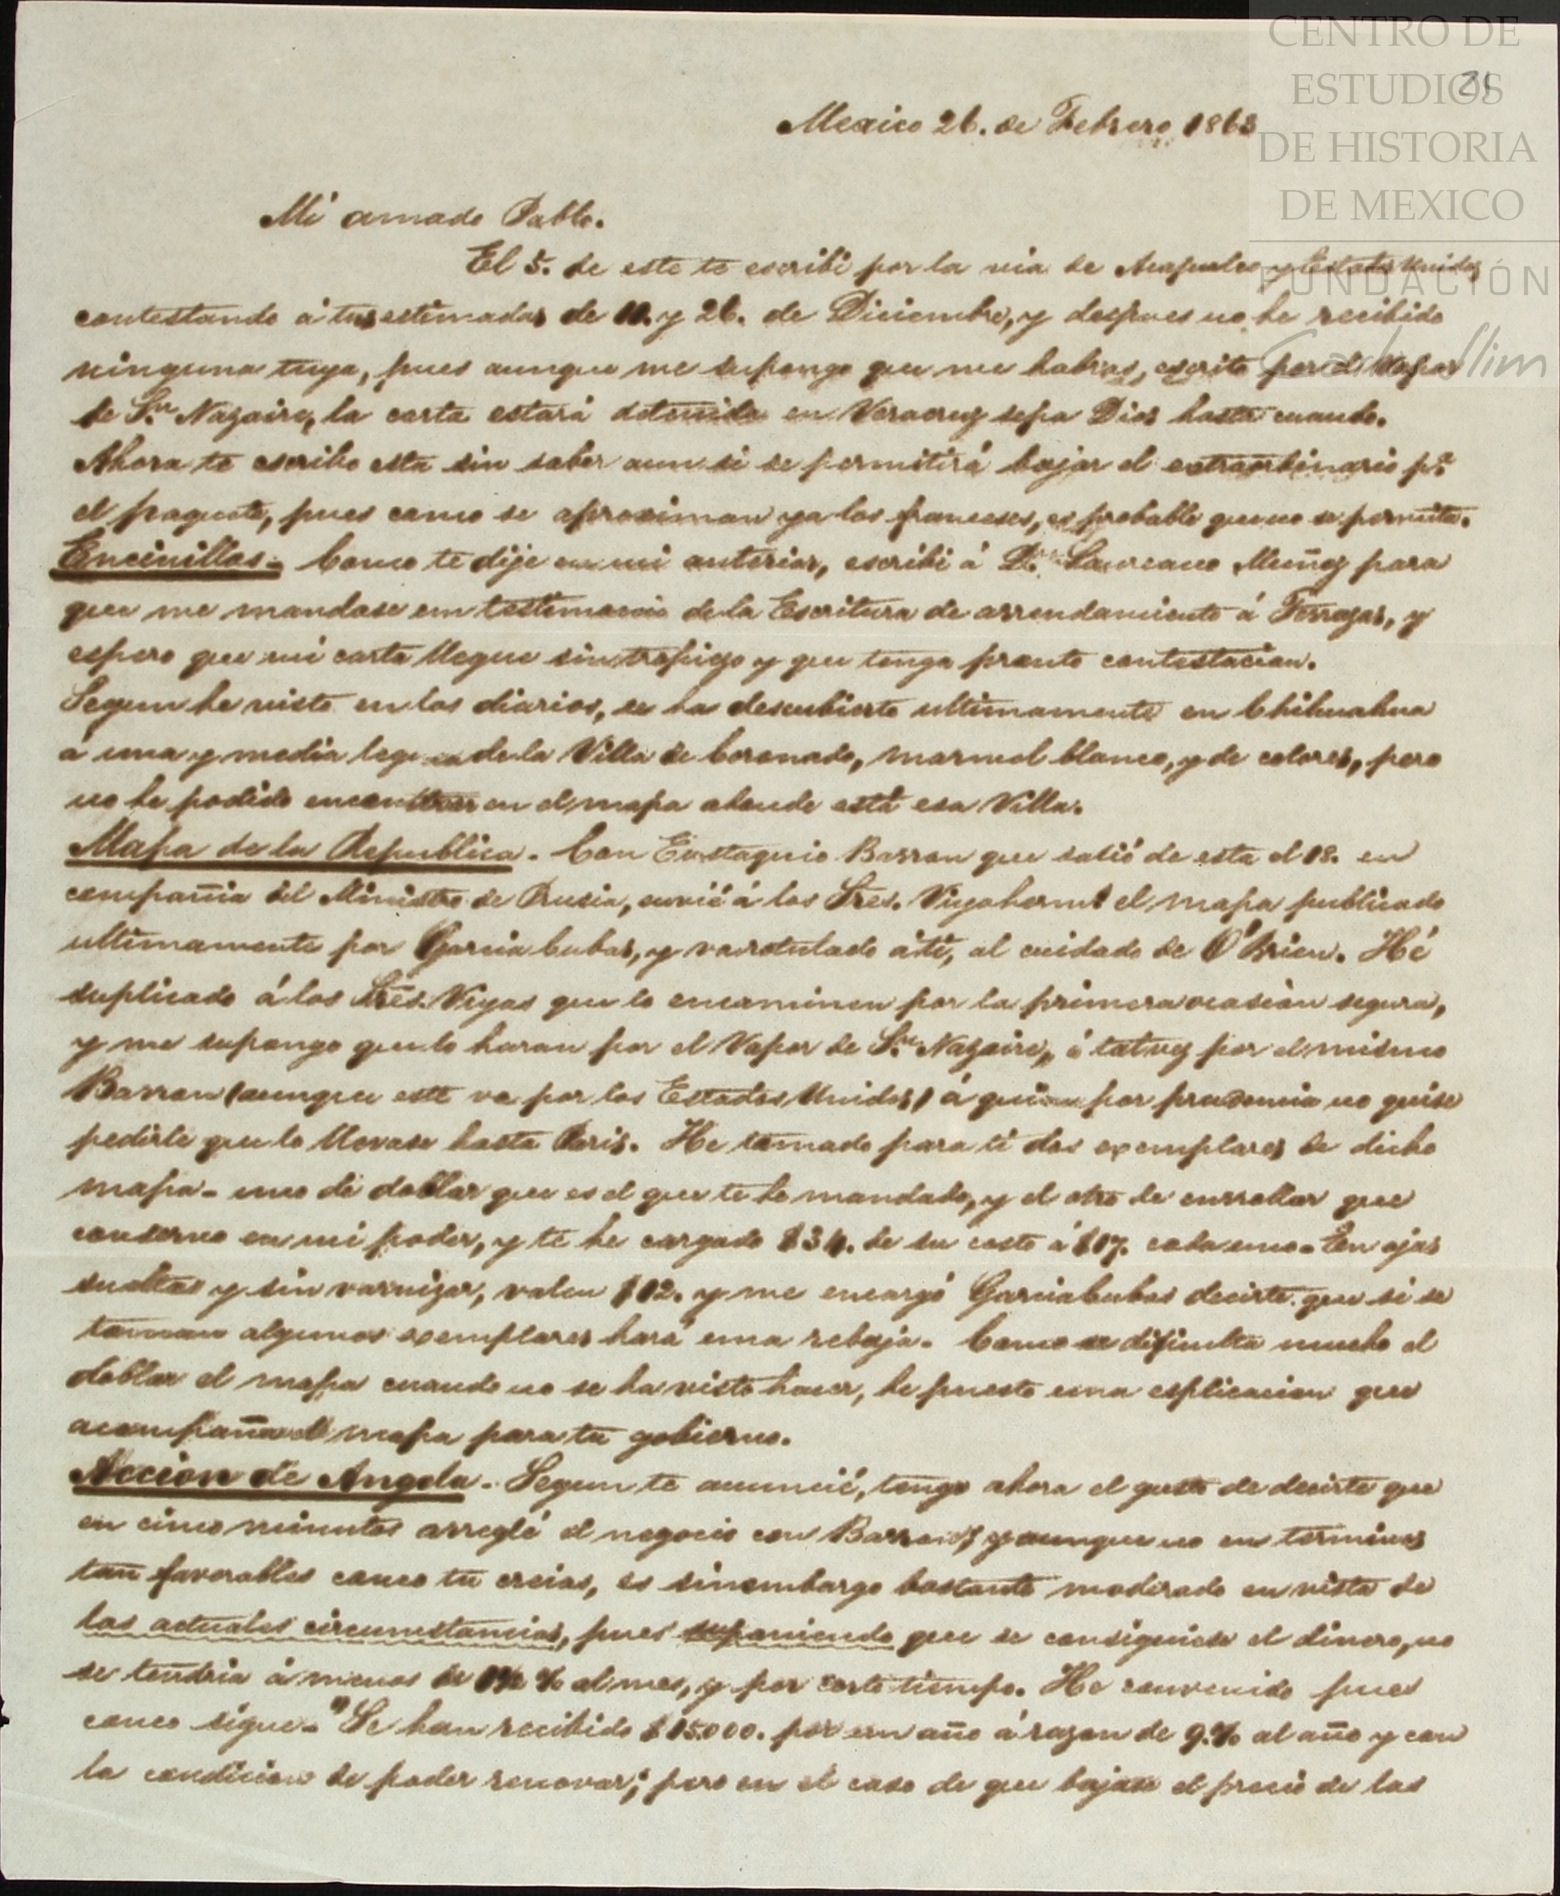 CENTRO DE
ESTUDIOS
DE HISTORIA
DE MEXICO
FUNDACIÓN
Carlos Slim
21
Mexico 26. de Febrero 1863
Mi amado Pablo.
El 5. de este te escribi por la via de Acapulco y Estados Unidos
contestando á tus estimadas de 10. y 26. de Diciembre, y despues no he recibido
ninguna tuya, pues aunque me supongo que me habras escrito por el Vapor
de Sn. Nazaire, la carta estará detenida en Veracruz sepa Dios hasta cuando.
Ahora te escribo esta sin saber aun si se permitirá bajar el extraordinario pa.
el paquete, pues como se aproximan ya los franceses, es probable que no se permita.
Encinillas. Como te dije en mi anterior, escribi á Dn. Laureano Muñoz para
que me mandase un testimonio de la Escritura de arrendamiento á Terrazas, y
espero que mi carta llegue sin tropiezo y que tenga pronto contestacion.
Segun he visto en los diarios, se ha descubierto ultimamente en Chihuahua
á una y media legua de la Villa de Coronado, marmol blanco, y de colores, pero
no he podido encontrar en el mapa adonde está esa Villa.
Mapa de la Republica. Con Eustaquio Barron que salió de esta el 18. en
compañia del Ministro de Prusia, envié á los Sres. Viya herms. el mapa publicado
ultimamente por Garcia Cubas, y va rotulado á ti, al cuidado de O'Brien. Hé
suplicado á los Sres. Viyas que lo encaminen por la primera ocasion segura,
y me supongo que lo haran por el Vapor de Sn. Nazaire, ó talvez por el mismo
Barron (aunque este va por los Estados Unidos) á quien por prudencia no quise
pedirle que lo llevase hasta Paris. He tomado para ti dos exemplares de dicho
mapa - uno de doblar que es el que te he mandado, y el otro de enrollar que
conservo en mi poder, y te he cargado $34. de su costo á $17. cada uno. En ojas
sueltas y sin varnizar, valen $12. y me encargó Garcia Cubas decirte que si se
toman algunos exemplares hará una rebaja. Como se dificulta mucho el
doblar el mapa cuando no se ha visto hacer, he puesto una esplicacion que
acompaña el mapa para tu gobierno.
Accion de Angela. Segun te anuncié, tengo ahora el gusto de decirte que
en cinco minutos arreglé el negocio con Barron, y aunque no en terminos
tan favorables como tu creias, es sinembargo bastante moderado en vista de
las actuales circumstancias, pues suponiendo que se consiguiese el dinero, no
se tendria á menos de 1½ % al mes, y por corto tiempo. He convenido pues
como sigue. "Se han recibido $15.000. por un año á razon de 9.% al año y con
la condicion de poder renovar; pero en el caso de que bajase el precio de las